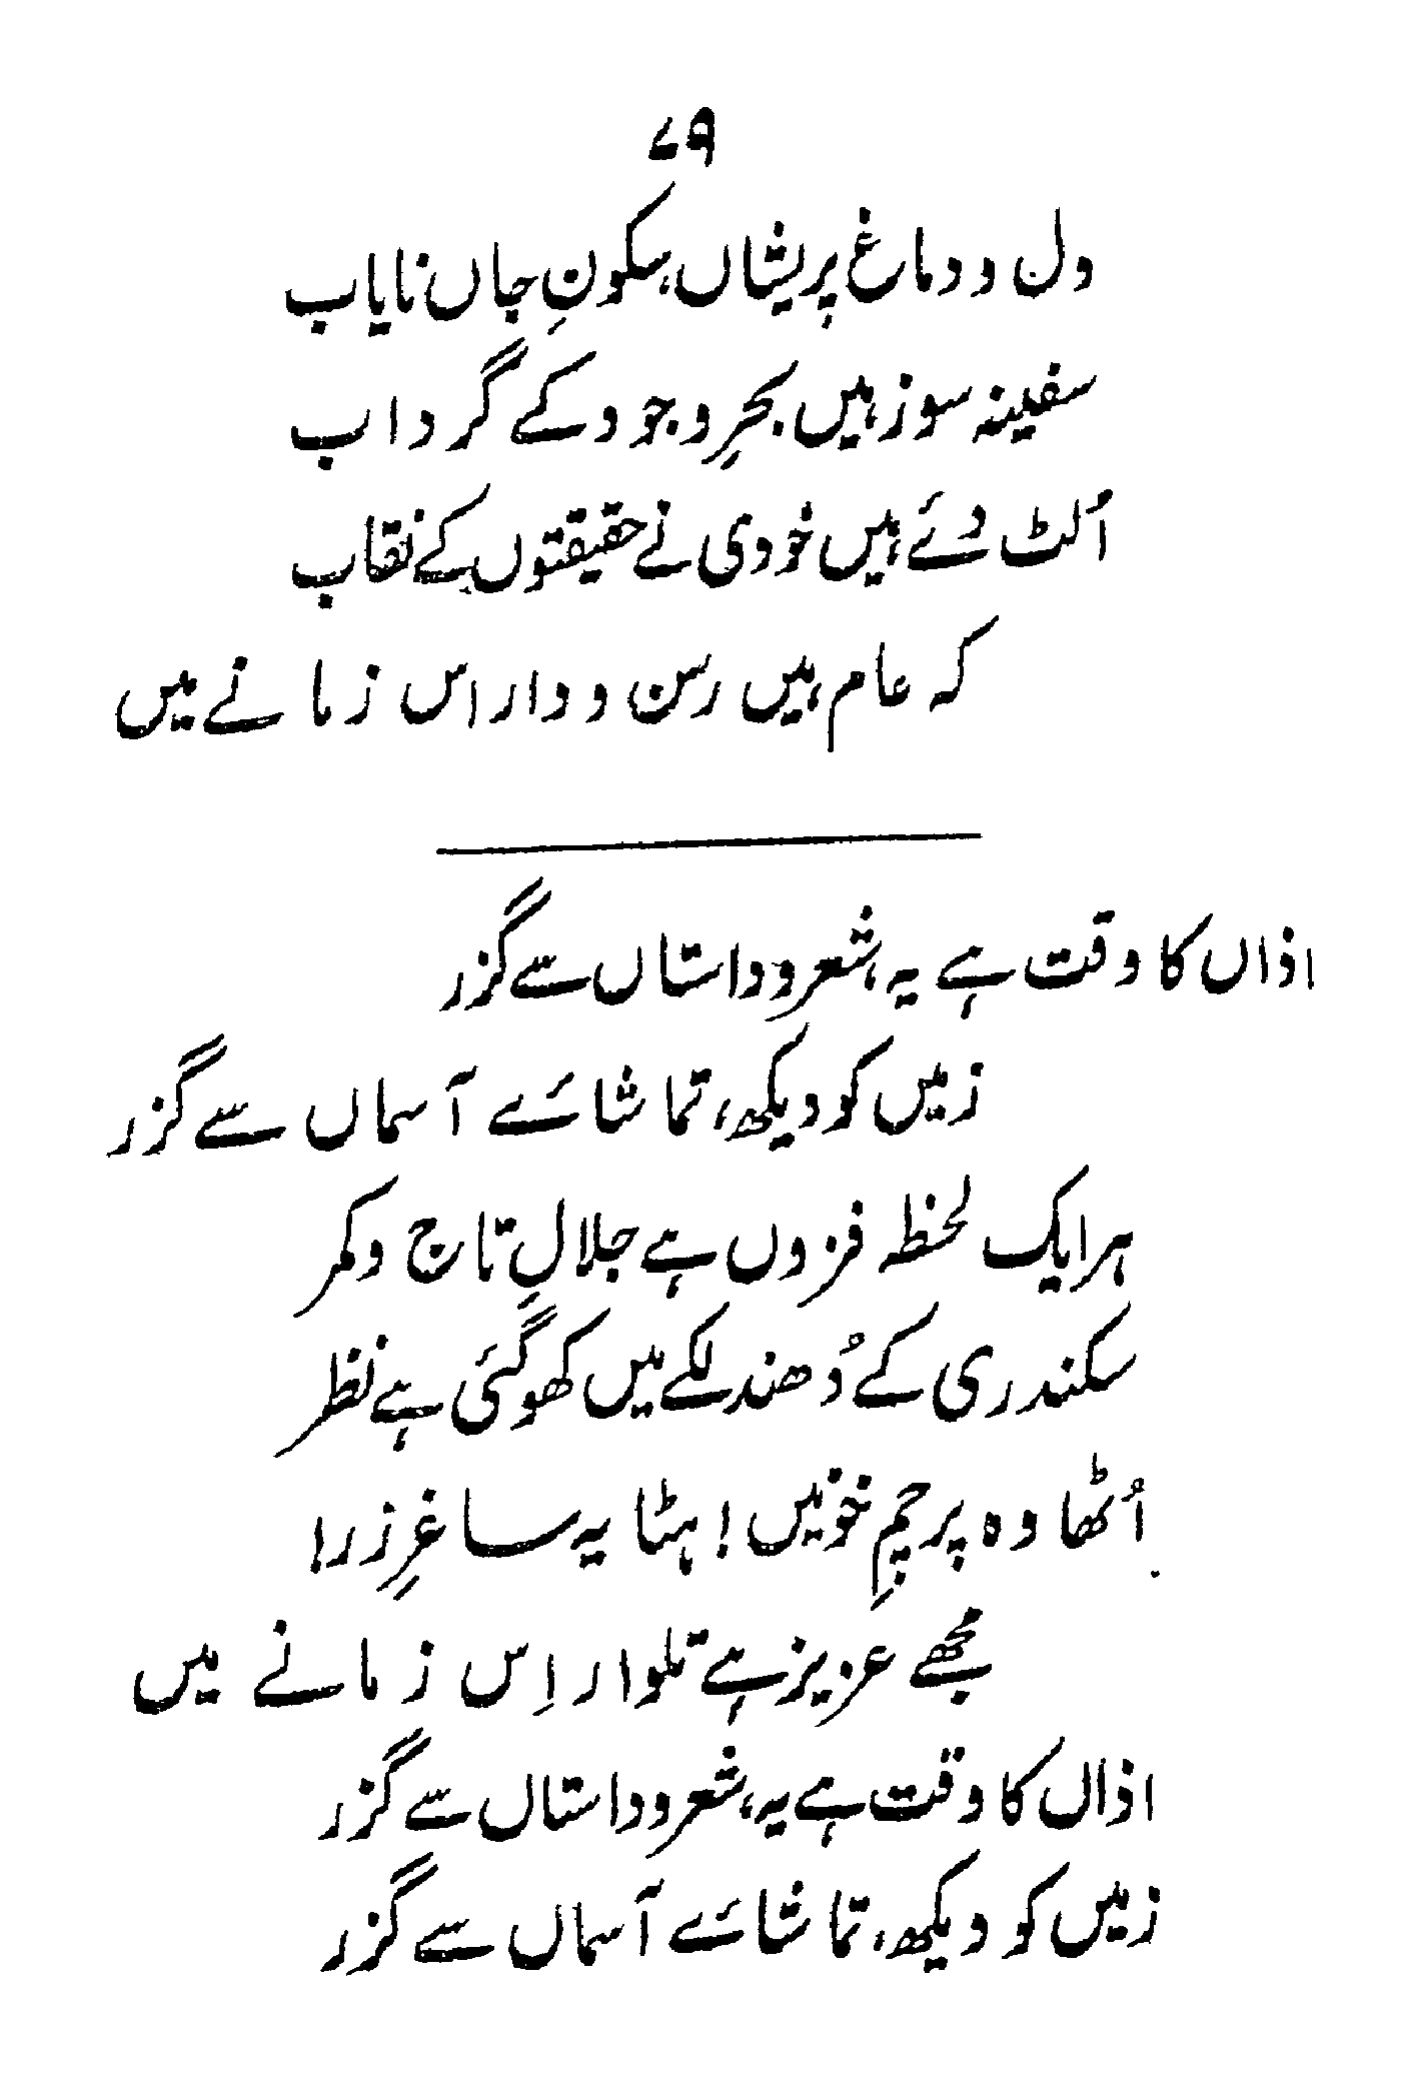 ۷۹
دل و دماغ پریشاں، سکونِ جاں نایاب
سفینہ سوز ہیں بحرِ وجود کے گرداب
اُلٹ دئے ہیں خودی نے حقیقتوں کے نقاب
کہ عام ہیں رسن و دار اس زمانے میں
اذاں کا وقت ہے یہ، شعر و داستاں سے گزر
زمیں کو دیکھ، تماشائے آسماں سے گزر
ہر ایک لحظہ فزوں ہے جلالِ تاج و کمر
سکندری کے دُھندلکے میں کھو گئی ہے نظر
اُٹھا وہ پرچمِ خونیں! ہٹا یہ ساغرِ زر!
مجھے عزیز ہے تلوار اِس زمانے میں
اذاں کا وقت ہے یہ، شعر و داستاں سے گزر
زمیں کو دیکھ، تماشائے آسماں سے گزر